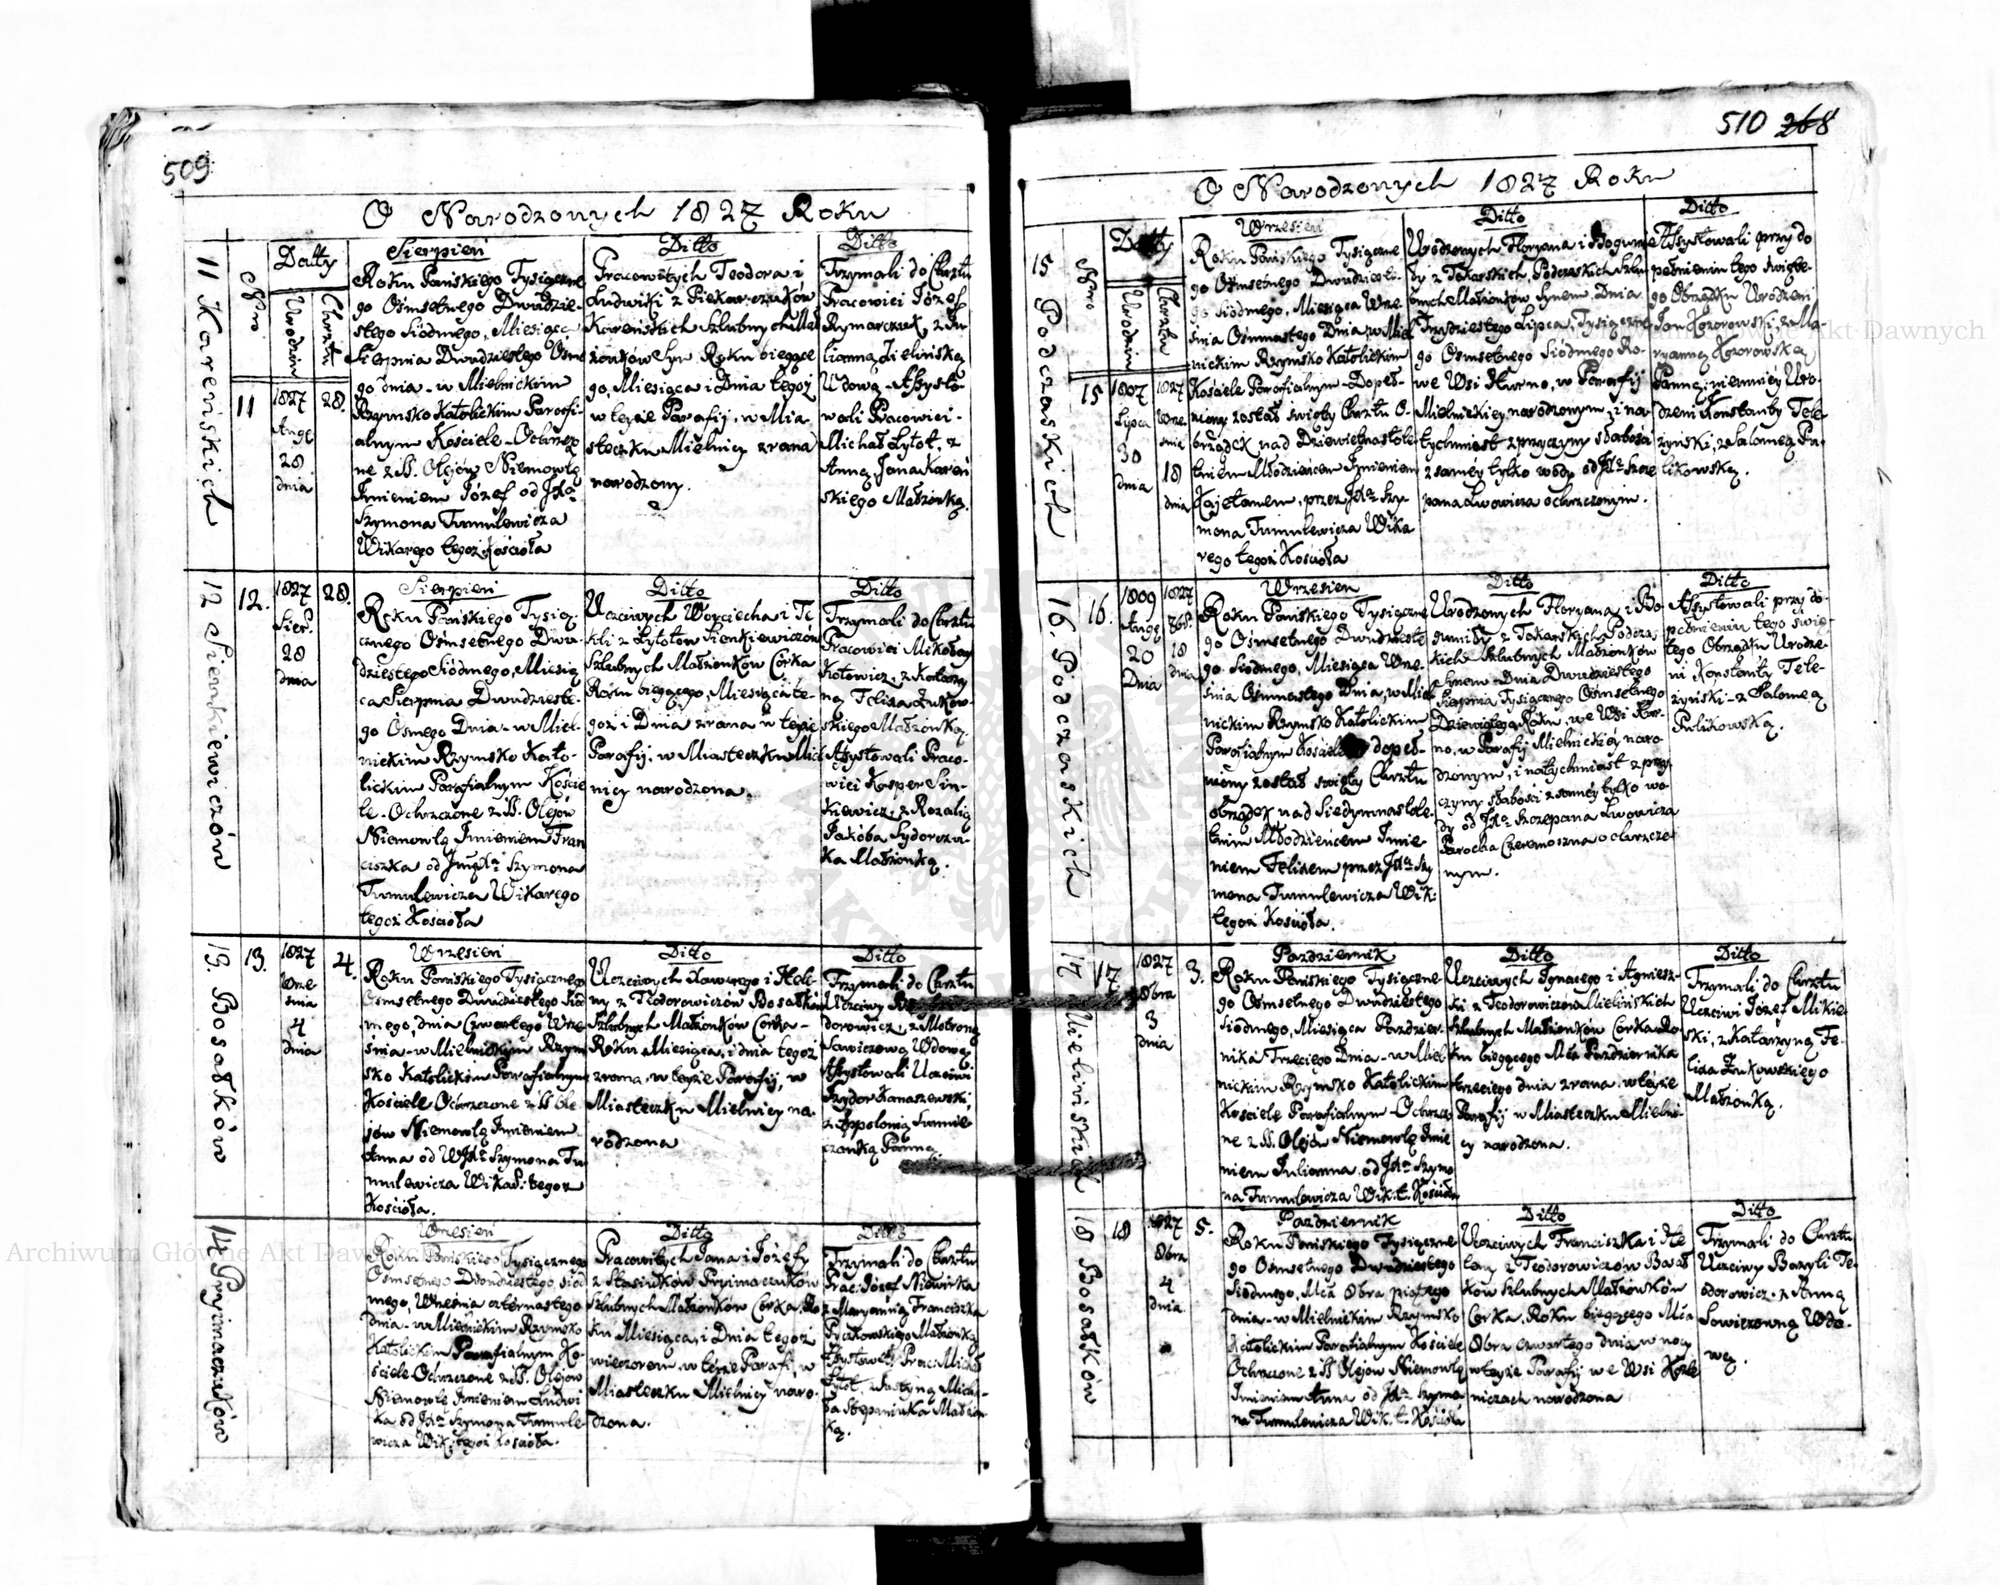 509
O Narodzonych 1827 Roku
Datty
Nro
Urodzin
Chrztu
11 Kareńskich
11
1827
Aug
28.
dnia
28.
Sierpień
Roku Pańskiego Tysiączne
go Ośmsetnego Dwudzie-
stego Siódmego, Miesiąca
Sierpnia Dwudziestego Osme
go dnia - w Mielnickim
Rzymsko Katolickim Parafi-
alnym Kościele - Ochrzczo
ne z SS. Olejów Niemowlę
Imieniem Józef od JXa
Szymona Tumulewicza
Wikarego tegoż Kościoła
Ditto
Pracowitych Teodora i
Ludwiki z Piekarczuków
Kareńskich Szlubnych Mał
żonków Syn, Roku bieżące
go, Miesiąca i Dnia tegoż
w tejże Parafij, w Mia
steczku Mielnicy z rana
narodzony.
Ditto
Trzymali do Chrztu
Pracowici Józef
Rymarczuk, z Ju
lianną Zielińską
Wdową - Assysto-
wali Pracowici -
Michał Żytot, z
Anną Jana Kareń
skiego Małżonką.
12 Sienkiewiczów
12.
1827
Sier.
28
dnia
28.
Sierpień
Roku Pańskiego Tysią
cznego Ośmsetnego Dwu-
dziestego Siódmego, Miesią
ca Sierpnia Dwudzieste-
go Osmego Dnia - w Miel-
nickim Rzymsko Kato-
lickim Parafialnym Koście
le - Ochrzczone z SS. Olejów
Niemowlę Imieniem Fran
ciszka od Jmć Xa Szymona
Tumulewicza Wikarego
tegoż Kościoła
Ditto
Uczciwych Woyciecha i Te
kli z Żytotów Sienkiewiczów
Szlubnych Małżonków Córka
Roku bieżącego, Miesiąca te-
goż i Dnia z rana w tejże
Parafij, w Miasteczku Miel
nicy narodzona.
Ditto
Trzymali do Chrztu
Pracowici Mikołay
Kotowicz, z Katarzy
ną Felixa Żukow-
skiego Małżonką.
Assystowali Praco-
wici Kasper Sin-
kiewicz, z Rozalią
Jakóba Sydorczu-
ka Małżonką.
13. Bosałków
13.
1827
Wrze
śnia
4
dnia
4.
Wrzesień
Roku Pańskiego Tysiącznego
Ośmsetnego Dwudziestego Siód
mego, dnia Czwartego Wrze
śnia - w Mielnickim Rzym
sko Katolickim Parafialnym
Kościele Ochrzczone z SS Ole
jów Niemowlę Imieniem
Anna od WJXa Szymona Tu
mulewicza Wikar: tegoż
Kościoła.
Ditto
Uczciwych Xawerego i Hele-
ny z Teodorowiczów Bosałków
Szlubnych Małżonków Córka -
Roku Miesiąca, i dnia tegoż
z rana, w tejże Parafij, w
Miasteczku Mielnicy na-
rodzona
Ditto
Trzymali do Chrztu
Uczciwy
dorowicz, z
Sawiczową Wdową
Assystowali Uczciwi
Fzydor Kanaszewski
z Appolonią
Panną.
14 Pryimaczuków
Wrzesień
Roku Pańskiego Tysiącznego
Ośmsetnego Dwudziestego Siód
mego, Września czternastego
dnia - w Mielnickim Rzymsko
Katolickim Parafialnym Ko-
ściele Ochrzczone z SS. Olejów
Niemowlę Imieniem Ludwi
ka, od JXa Szymona Tumule-
wicza Wik: tegoż Kościoła.
Ditto
Pracowitych Jana i Józefy
z Stasiuków Pryimaczuków
Szlubnych Małżonków Córka, Ro
ku Miesiąca, i Dnia tegoż
wieczorem w tejże Parafi, w
Miasteczku Mielnicy naro-
dzona.
Ditto
Trzymali do Chrztu
Prac: Józef
z Maryanną Franciszka
Pyczkowskiego Małżonką
Assystowali Prac: Michał
Żytot, z Justyną Micha-
ła Stepaniuka Małżon
ką.
510 268
O Narodzonych 1827 Roku
Datty
Nro
Urodzin
Chrztu
15 Podczaskich
15
1807
Lypca
30
dnia
1827
Wrze
śnia
18
dnia
Wrzesień
Roku Pańskiego Tysiączne
go Ośmsetnego Dwudzieste-
go Siódmego, Miesiąca Wrze
śnia Ośmnastego Dnia, w Miel
nickim Rzymsko Katolickim
Kościele Parafialnym - Dopeł-
niony został Święty Chrztu O-
brządek nad Dziewiętnastole
tniem Młodzieńcem Imieniem
Kajetanem, przez JXa Szy-
mona Tumulewicza Wika
rego tegoż Kościoła
Ditto
Urodzonych Floryana i Bogumi
ły z Tokarskich, Podczaskich Szlu
bnych Małżonków Synem, Dnia
Trzydziestego Lipca, Tysiączne
go Ośmsetnego Siódmego Ro-
ku we Wsi Kurno, w Parafij
Mielnickiey narodzonym, i na-
tychmiast z przyczyny słabości
z saméy tylko wody od JXa Szcze
pana Lwowicza ochrzczonym.
Ditto
Assystowali przy do
pełnieniu tego Święte-
go Obrządku Urodzeni
Jan Kozorowski, z Ma
ryanną Kozorowską
Panną; niemniéy Uro-
dzeni Konstanty Tele-
żyński, z Salomeą Pu-
likowską.
16. Podczaskich
16.
1809
Aug
20
Dnia
1827
7br
18
dnia
Wrzesień
Roku Pańskiego Tysiączne
go Ośmsetnego Dwudzieste
go Siódmego, Miesiąca Wrze
śnia Ośmnastego Dnia, w Miel
nickim Rzymsko Katolickim
Parafialnym Kościele dopeł-
niony został święty Chrztu
obrządek nad Siedymnastole-
tnim Młodzieńcem Imie-
niem Felixem przez JXa Szy
mona Tumulewicza Wik:
tegoż Kościoła.
Ditto
Urodzonych Floryana i Bo
gumiły z Tokarskich Podczas
kich Szlubnych Małżonków
Synem Dnia Dwudziestego
Sierpnia Tysiącznego Ośmsetnego
Dziewiątego Roku, we Wsi Kur-
no, w Parafij Mielnickiéy naro-
dzonym, i natychmiast z przy
czyny słabości z saméy tylko wo
dy od JXa Szczepana Lwowicza
Parocha Czeremoszna ochrzczo
nym.
Ditto
Assystowali przy do-
pełnieniu tego świę-
tego Obrządku Urodze-
ni Konstanty Tele-
żyński - z Salomeą
Pulikowską.
17 Zielińskich
17
1827
8bra
3
dnia
3.
Pazdziernik
Roku Pańskiego Tysiączne-
go Ośmsetnego Dwudziestego
Siódmego, Miesiąca Pazdzier-
nika Trzeciego Dnia - w Miel-
nickim Rzymsko Katolickim
Kościele Parafialnym - Ochrzczo
ne z SS. Olejów Niemowlę Imie
niem Julianna, od JXa Szymo
na Tumulewicza Wik: t. Kościoła
Ditto
Uczciwych Ignacego i Agniesz-
ki z Teodorowiczów Zielińskich
Szlubnych Małżonków Córka, Ro
ku bieżącego Mca Pazdziernika
trzeciego dnia z rana w tejże
Parafij w Miasteczku Mielni-
cy narodzona.
Ditto
Trzymali do Chrztu
Uczciwi Józef Mikie-
ski, z Katarzyną Fe-
lixa Żukowskiego
Małżonką.
18 Bosałków
18
1827
8bra
4
dnia
5.
Pazdziernik
Roku Pańskiego Tysiączne
go Ośmsetnego Dwudziestego
Siódmego, Mca 8bra piątego
dnia - w Mielnickim Rzymsko
Katolickim Parafialnym Kościele
Ochrzczone z SS Olejów Niemowlę
Imieniem Anna od JXa Szymo
na Tumulewicza Wik. t. Kościoła
Ditto
Uczciwych Franciszka i He
leny z Teodorowiczów Bosał
ków Szlubnych Małżonków
Córka, Roku bieżącego Mca
8bra czwartego dnia w nocy
w tejże Parafij we Wsi
niczach narodzona
Ditto
Trzymali do Chrztu
Uczciwy Bazyli Te-
odorowicz, z Anną
Sawiczowną Wdo-
wą.
Archiwum Główne Akt Dawnych
Akt Dawnych